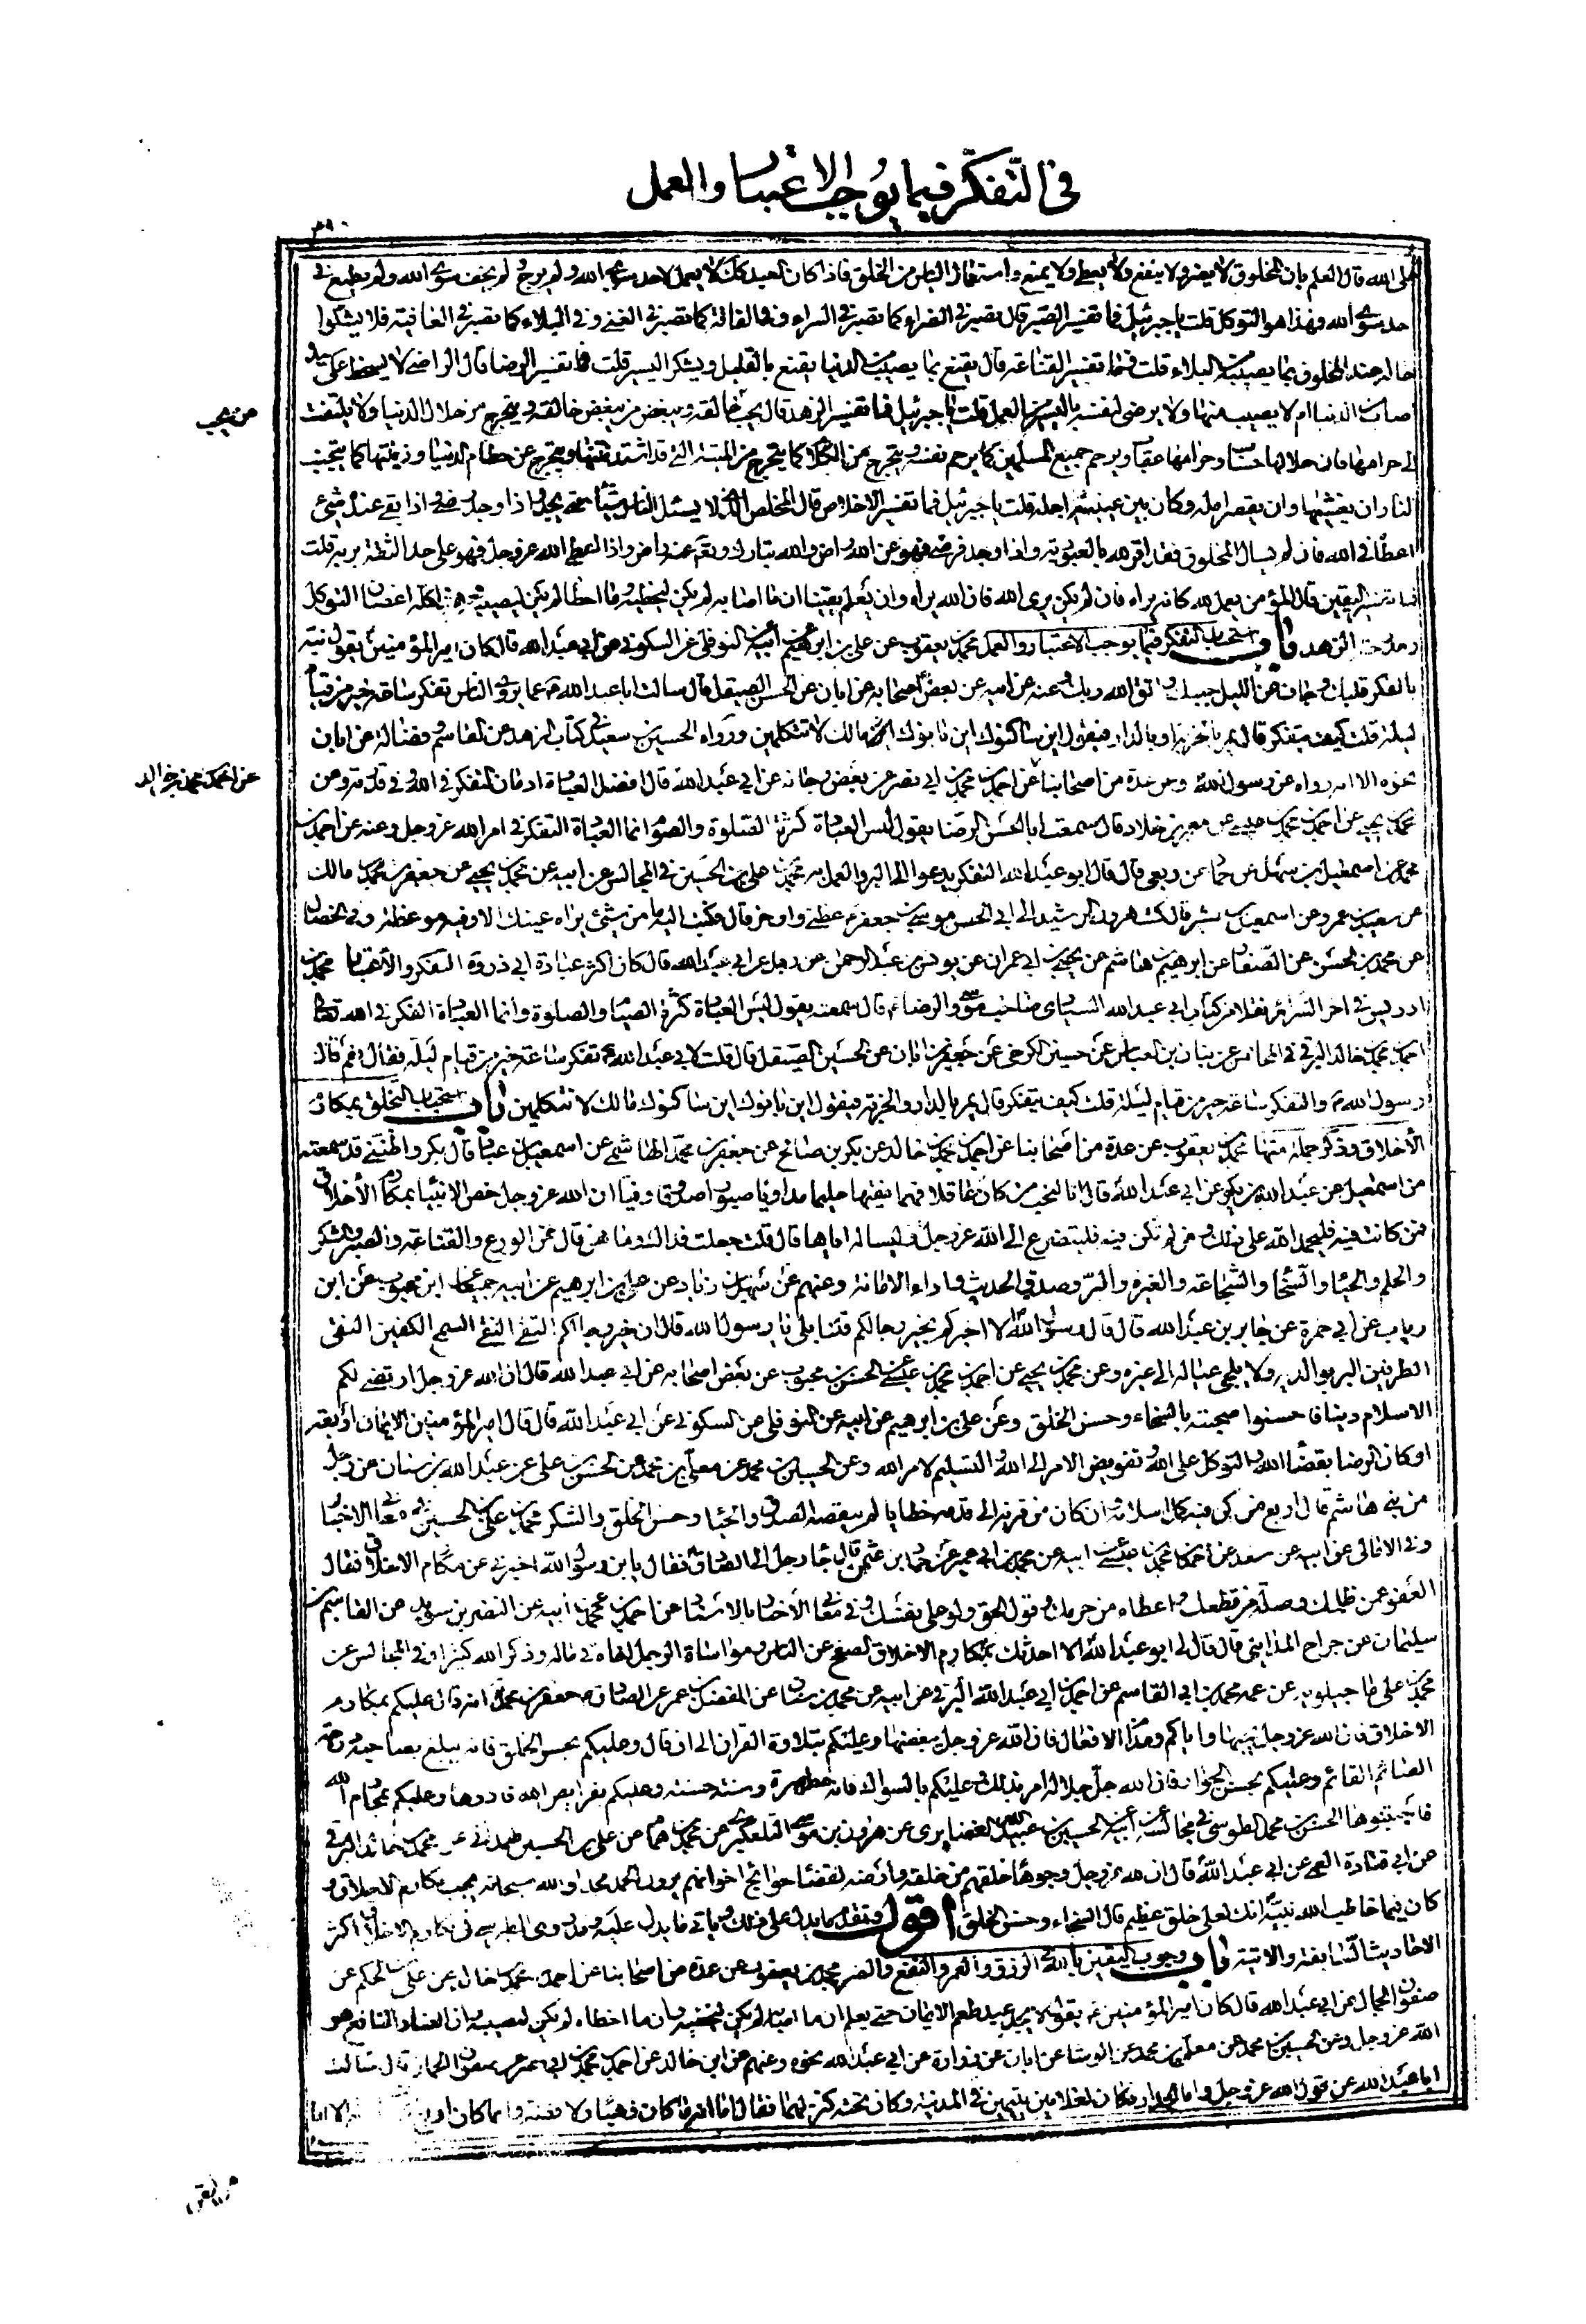 في التفكر فيما يوجب الاعتبار والعمل
على الله قال العلم بان المخلوق لا يضر ولا ينفع ولا يعطي ولا يمنع واستعمال الياس من الخلق فاذا كان العبد كذلك لا يعمل لاحد سوى الله ولم يرج ولم يخف سوى الله ولم يطمع في
احد سوى الله فهذا هو التوكل قلت يا جبرئيل فما تفسير الصبر قال تصبر في الضراء كما تصبر في السراء وفي الفاقة كما تصبر في الغنى وفي البلاء كما تصبر في العافية فلا يشكوا
حاله عند المخلوق بما يصيبه من البلاء قلت فما تفسير القناعة قال يقنع بما يصيب من الدنيا يقنع بالقليل ويشكر اليسير قلت فما تفسير الرضا قال الراضي لا يسخط على سيده
اصاب من الدنيا ام لا يصيب منها ولا يرضى لنفسه باليسير من العمل قلت يا جبرئيل فما تفسير الزهد قال يحب خالقه ويبغض من يبغض خالقه ويتحرج من حلال الدنيا ولا يلتفت
من يحب
الى حرامها فان حلالها حساب وحرامها عقاب ويرحم جميع المسلمين كما يرحم نفسه ويتحرج من الكلام كما يتحرج من الميتة التي قد اشتد نتنها ويتحرج عن حطام الدنيا وزينتها كما يتجنب
النار ان يغشيها وان يقصر امله وكان بين عينيه اجله قلت يا جبرئيل فما تفسير الاخلاص قال المخلص الذي لا يسئل الناس شيئا حتى يجد واذا وجد رضي واذا بقي عنده شيء
اعطاه في الله فان لم يسال المخلوق فقد اقر لله بالعبودية واذا وجد فرضي فهو عن الله راض والله تبارك وتعالى عنه راض واذا اعطى الله عز وجل فهو على حد الثقة بربه قلت
فما تفسير اليقين قال المؤمن يعمل لله كانه يراه فان لم يكن يرى الله فان الله يراه وان يعلم يقينا ان ما اصابه لم يكن ليخطيه وما اخطاه لم يكن ليصيبه وهذا كله اغصان التوكل
ومدرجة الزهد باب استحباب التفكر فيما يوجب الاعتبار والعمل محمد بن يعقوب عن علي بن ابرهيم عن ابيه عن النوفلي عن السكوني عن ابي عبد الله قال كان امير المؤمنين يقول نبه
بالفكر قلبك وجاف عن الليل جنبك واتق الله ربك وعنه عن ابيه عن بعض اصحابه عن ابان عن الحسن الصيقل قال سالت ابا عبد الله عما يروي الناس تفكر ساعة خير من قيام
ليلة قلت كيف يتفكر قال يمر بالخربة او بالدار فيقول اين ساكنوك اين بانوك مالك لا تتكلمين ورواه الحسين بن سعيد في كتاب الزهد عن القاسم وفضالة عن ابان
نحوه الا انه رواه عن رسول الله وعن عدة من اصحابنا عن احمد بن محمد بن ابي نصر عن بعض رجاله عن ابي عبد الله قال افضل العبادة ادمان التفكر في الله وفي قدرته وعن
عن احمد بن محمد بن خالد
محمد بن يحيى عن احمد بن محمد بن عيسى عن معمر بن خلاد قال سمعت ابا الحسن الرضا يقول ليس العبادة كثرة الصلوة والصوم انما العبادة التفكر في امر الله عز وجل وعنه عن احمد بن
محمد عن اسمعيل بن سهل عن حماد عن ربعي قال قال ابو عبد الله التفكر يدعو الى البر والعمل به محمد بن علي بن الحسين في المجالس عن ابيه عن محمد بن يحيى عن جعفر بن محمد بن مالك
عن سعيد بن عمرو عن اسمعيل بن بشر قال كتب هرون الرشيد الى ابي الحسن موسى بن جعفر عظني واوجز قال فكتب اليه ما من شيء تراه عينك الا وفيه موعظة وفي الخصال
عن محمد بن الحسن عن الصفار عن ابرهيم بن هاشم عن يحيى بن ابي عمران عن يونس بن عبد الرحمن عن رجل عن ابي عبد الله قال كان اكثر عبادة ابي ذر ره التفكر والاعتبار محمد بن
ادريس في اخر السرائر نقلا من كتاب ابي عبد الله السياري صاحب موسى والرضا قال سمعته يقول ليس العبادة كثرة الصيام والصلوة وانما العبادة الفكر في الله تعالى
احمد بن محمد بن خالد البرقي في المحاسن عن بنان بن العباس عن حسين الكرخي عن جعفر بن ابان عن الحسين الصيقل قال قلت لابي عبد الله تفكر ساعة خير من قيام ليلة فقال نعم قال
رسول الله تفكر ساعة خير من قيام ليلة قلت كيف يتفكر قال يمر بالدار والخربة فيقول اين بانوك اين ساكنوك مالك لا تتكلمين باب استحباب التخلق بمكارم
الأخلاق وذكر جملة منها محمد بن يعقوب عن عدة من اصحابنا عن احمد بن محمد بن خالد عن بكر بن صالح عن جعفر بن محمد الهاشمي عن اسمعيل بن عباد قال بكر واظنني قد سمعته
من اسمعيل عن عبد الله بن بكير عن ابي عبد الله قال انا لنحب من كان عاقلا فهما فقيها حليما مداريا صبورا صدوقا وفيا ان الله عز وجل خص الانبياء بمكارم الأخلاق
فمن كانت فيه فليحمد الله على ذلك ومن لم تكن فيه فليتضرع الى الله عز وجل وليساله اياها قال قلت جعلت فداك وما هن قال هن الورع والقناعة والصبر والشكر
والحلم والحياء والسخاء والشجاعة والغيرة والبر وصدق الحديث واداء الامانة وعنهم عن سهل بن زياد وعن علي بن ابرهيم عن ابيه جميعا عن ابن محبوب عن ابن
رياب عن ابي حمزة عن جابر بن عبد الله قال قال رسول الله الا اخبركم بخير رجالكم قلنا بلى يا رسول الله قال ان خير رجالكم التقي النقي السمح الكفين النقي
الطرفين البر بوالديه ولا يلجئ عياله الى غيره وعن محمد بن يحيى عن احمد بن محمد بن عيسى عن الحسن بن محبوب عن بعض اصحابه عن ابي عبد الله قال ان الله عز وجل ارتضى لكم
الاسلام دينا فاحسنوا صحبته بالسخاء وحسن الخلق وعن علي بن ابرهيم عن ابيه عن النوفلي عن السكوني عن ابي عبد الله قال قال امير المؤمنين الايمان اربعة
اركان الرضا بقضاء الله والتوكل على الله وتفويض الامر الى الله والتسليم لامر الله وعن الحسين بن محمد عن معلى بن محمد عن الحسن بن علي عن عبد الله بن سنان عن رجل
من بني هاشم قال اربع من كن فيه كمل اسلامه وان كان من قرنه الى قدمه خطايا لم ينقصه الصدق والحياء وحسن الخلق والشكر محمد بن علي بن الحسين في معاني الاخبار
وفي الامالي عن ابيه عن سعد عن احمد بن محمد بن عيسى عن ابيه عن محمد بن ابي عمير عن حماد بن عثمن قال جاء رجل الى الصادق فقال يا بن رسول الله اخبرني عن مكارم الاخلاق فقال
العفو عمن ظلمك وصلة من قطعك واعطاء من حرمك وقول الحق ولو على نفسك وفي معاني الأخبار بالاسناد عن احمد بن محمد عن ابيه عن النضر بن سويد عن القاسم بن
سليمان عن جراح المدايني قال قال لي ابو عبد الله الا احدثك بمكارم الاخلاق الصفح عن الناس ومواساة الرجل اخاه في ماله وذكر الله كثيرا وفي المجالس عن
محمد بن علي ماجيلويه عن عمه محمد بن ابي القاسم عن احمد بن ابي عبد الله البرقي عن ابيه عن محمد بن سنان عن المفضل بن عمر عن الصادق جعفر بن محمد انه قال عليكم بمكارم
الاخلاق فان الله عز وجل يحبها واياكم ومذام الافعال فان الله عز وجل يبغضها وعليكم بتلاوة القران الى ان قال وعليكم بحسن الخلق فانه يبلغ بصاحبه درجة
الصائم القائم وعليكم بحسن الجوار فان الله جل جلاله امر بذلك وعليكم بالسواك فانه مطهرة وسنة حسنة وعليكم بفرايض الله فادوها وعليكم بمحارم الله
فاجتنبوها الحسن بن محمد الطوسي في مجالسه عن ابيه عن الحسين بن عبيد الله الغضايري عن هرون بن موسى التلعكبري عن محمد بن همام عن علي بن الحسين الهمداني عن محمد بن خالد البرقي
عن ابي قتادة القمي عن ابي عبد الله قال ان لله عز وجل وجوها خلقهم من خلقه وارضه لقضاء حوائج اخوانهم يرون الحمد مجدا والله سبحانه يحب مكارم الاخلاق و
كان فيما خاطب الله نبيه انك لعلى خلق عظيم قال السخاء وحسن الخلق اقول وتقدم ما يدل على ذلك وياتي ما يدل عليه وروى الطبرسي في مكارم الاخلاق اكثر
الاحاديث السابقة والاتية باب وجوب اليقين بالله في الرزق والعمر والنفع والضر محمد بن يعقوب عن عدة من اصحابنا عن احمد بن محمد بن خالد عن علي بن الحكم عن
صفوان الجمال عن ابي عبد الله قال كان امير المؤمنين يقول لا يجد عبد طعم الايمان حتى يعلم ان ما اصابه لم يكن ليخطيه وان ما اخطاه لم يكن ليصيبه وان الضار النافع هو
الله عز وجل وعن الحسين بن محمد عن معلى بن محمد عن الوشاء عن ابان عن زرارة عن ابي عبد الله نحوه وعنهم عن ابن خالد عن احمد بن محمد بن ابي نصر عن صفوان الجمال قال سالت
ابا عبد الله عن قول الله عز وجل واما الجدار فكان لغلامين يتيمين في المدينة وكان تحته كنز لهما فقال اما انه ما كان ذهبا ولا فضة وانما كان اربع الا انا
من ايقن